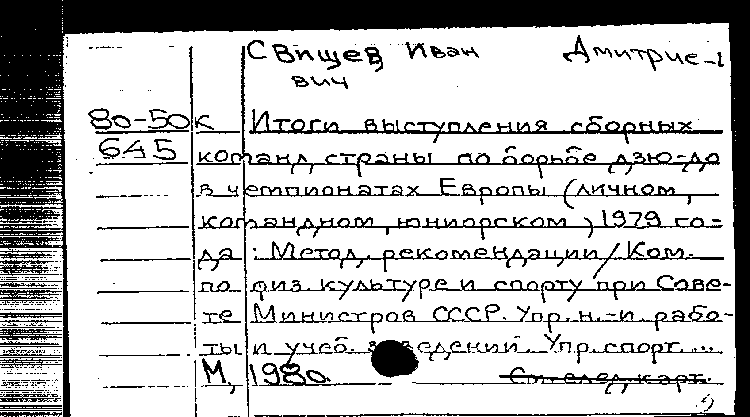 Свищев Иван Дмитрие-
вич
80-50к Итоги выступления сборных
645 команд страны по борьбе дзю-до
в чемпионатах Европы (личном,
командном, юниорском) 1979 го=
да: Метод. рекомендации/Ком.
по физ. культуре и спорту при Сове-
те Министров СССР. Упр. н.-и. рабо-
ты и учеб. заведений. Упр. спорт. ...
М., 1980.
См. след. карт.